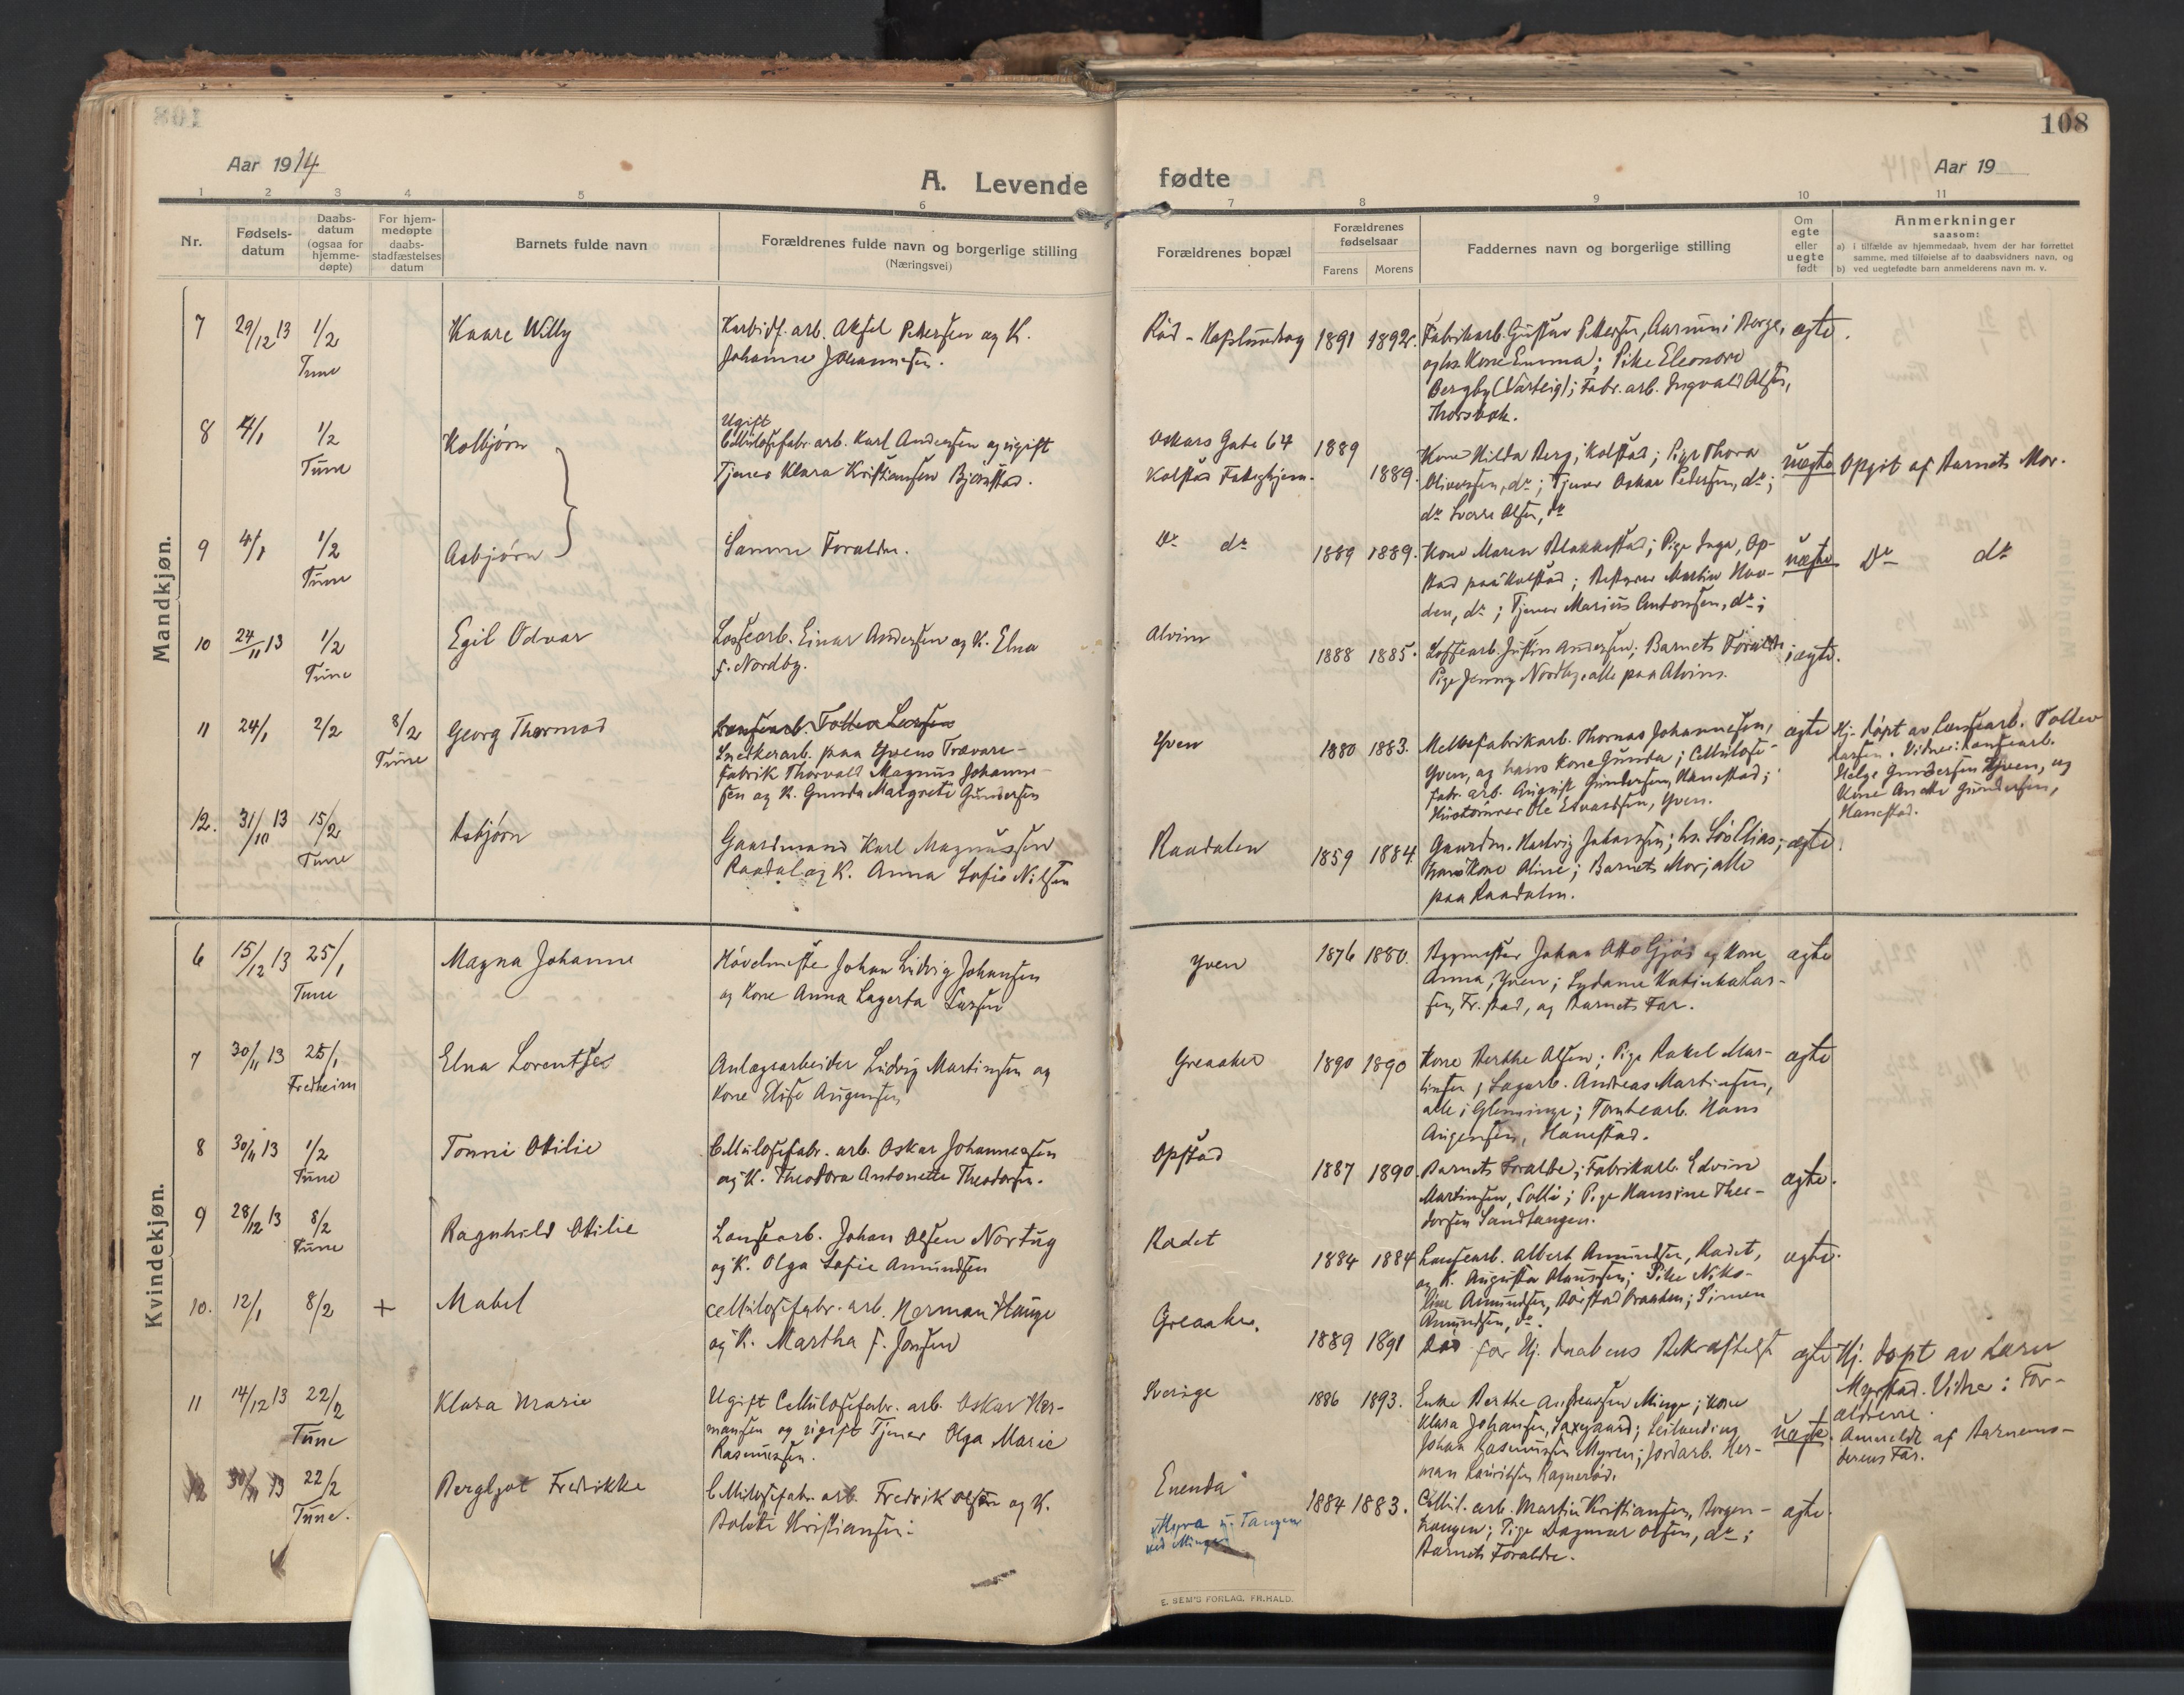 108
Aar 1914
A. Levende fødte
Aar 19
1 2 3 4 5 6 7 8 9 10 11
Nr.
Fødsels-
datum
Daabs-
datum
(ogsaa for
hjemme-
døpte)
For hjem-
medøpte
daabs-
stadfæstelses
datum
Barnets fulde navn
Forældrenes fulde navn og borgerlige stilling
(Næringsvei)
Forældrenes bopæl
Forældrenes
fødselsaar
Farens Morens
Faddernes navn og borgerlige stilling
Om
egte
eller
uegte
født
Anmerkninger
saasom:
a) i tilfælde av hjemmedaab, hvem der har forrettet
samme, med tilføielse af to daabsvidners navn, og
b) ved uegtefødte barn anmelderens navn m. v.
Mandkjøn.
7 29/12 13 1/2 Tune
Kaare Willy
Karbidf. arb. Aksel Pettersen og K.
Johanne Johannesen.
Råd - Hafslundsog 1891 1892.
Fabrikarb. Gustav Pettersen, Aarum i Berge,
og hs. Kone Emma; Pike Eleonore
Bergby (Varteig); Fabr. arb. Ingvald Olsen,
Thorsbæk.
ægte.
8 4/1 1/2 Tune
Kolbjørn
Ugift
Cellulosefabr. arb. Karl Andersen og ugift
Tjener Klara Kristiansen Bjørnstad.
Oskars Gate 64
Kalstad Fattighjem.
1889 1889.
Kone Hilda Berg, Kalstad; Pige Thora
Oliversen, do; Tjener Oskar Pedersen, do;
do Sverre Olsen, do
uægte
Opgit af Barnets Mor.
9 4/1 1/2 Tune
Asbjørn
Samme Forældre.
Do do
1889 1889.
Kone Maren Blakkestad; Pige Inga, Op-
stad paa Kalstad; Bestyrer Martin Hov-
den, do; Tjener Marius Antonsen, do;
uægte
Do do
10 24/11 13 1/2 Tune
Egil Odvar
Lossearb. Einar Andersen og K. Elna
f. Nordby.
Alvim
1888 1885.
Lossearb. Justin Andersen; Barnets Forældre;
Pige Jenny Nordby, alle paa Alvim.
ægte.
11 24/1 2/2 8/2 Tune
Georg Thormod
Lænsearb. Tollev Larsen
Snedkerarb. paa Yvens Trævare-
fabrik Thorvald Magnus Johanne-
sen og K. Gunda Margrete Gundersen
Yven
1880 1883.
Melkefabrikarb. Thomas Johannesen,
Yven, og hans Kone Gunda; Cellulose-
fabr. arb. August Gundersen, Hanestad;
Hustømrer Ole Edvardsen, Yven.
ægte
Hj. døpt av Lænsearb. Tollev
Larsen. Vidner: Lænsearb.
Helge Gundersen Yven, og
Kone Anette Gundersen,
Hanestad.
12. 31/10 13 15/2 Tune
Asbjørn
Gaardmand Karl Magnussen
Raadal og K. Anna Sofie Nilsen
Raadalen
1859 1884.
Gaardm. Hartvig Johansen; hs. Søn Elias;
hans Kone Aline; Barnets Mor; alle
paa Raadalen.
ægte.
Kvindekjøn.
6 15/12 13 25/1 Tune
Magna Johanne
Høvelmester Johan Ludvig Johansen
og Kone Anna Lagerta Larsen
Yven
1876 1880.
Bygmester Johan Otto Gjøs og Kone
Anna, Yven; Sydame Katinka Lar-
sen, Fr.stad, og Barnets Far.
ægte
7 30/11 13 25/1 Fredheim
Elna Lorentse
Anlægsarbeider Ludvig Martinsen og
Kone Elise Augensen
Greaaker
1890 1890
Kone Berthe Olsen; Pige Rakel Mar-
tinsen; Sagarb. Andreas Martinsen,
alle i Glemminge; Tomtearb. Hans
Augensen, Hanestad.
ægte
8 30/11 13 1/2 Tune
Tonni Otilie
Cellulosefabr. arb. Oskar Johannesen
og K. Theodora Antonette Theodorsen.
Opstad
1887 1890.
Barnets Forældre; Fabrikarb. Edvin
Martinsen, Solli; Pige Hansine Theo-
dorsen Sandtangen.
ægte.
9 28/12 13 8/2 Tune
Ragnhild Otilie
Lænsearb. Johan Olsen Nortug
og K. Olga Sofie Amundsen
Rødet
1884 1884
Lænsearb. Albert Amundsen, Rødet,
og K. Augusta Olaussen; Pike Niko-
line Amundsen, Borstad Braaten; Simen
Amundsen, do.
ægte.
10. 12/1 8/2 +
Mabel
Cellulosefabr. arb. Herman Hauge
og K. Martha f. Jonsen
Greaaker.
1889 1891
Død før Hj. daabens Bekræftelse
ægte
Hj. døpt av Lærer
Myrstad. Vidner: For-
ældrene.
11 14/12 13 22/2 Tune
Klara Marie
Ugift Cellulosefabr. arb. Oskar Her-
mansen og ugift Tjener Olga Marie
Rasmussen.
Sverige
1886 1893.
Enke Berthe Andreassen Minge; Kone
Klara Johansen, Saxegaard; Leilending
Johan Rasmussen Myren; Jordarb. Her-
man Lauritsen Ragnerød.
uægte.
Anmeldt af Barnemo-
derens Far.
12 30/11 13 22/2 Tune.
Bergljot Fredrikke
Cellulosefabr. arb. Fredrik Olsen og K.
Bolette Kristiansen.
Enenda
Myra u. Tangen
ved Minge
1884 1883.
Cellul. arb. Martin Kristiansen, Borgen-
haugen; Pige Dagmar Olsen, do;
Barnets Forældre.
ægte.
E. SEM'S FORLAG, FR.HALD.